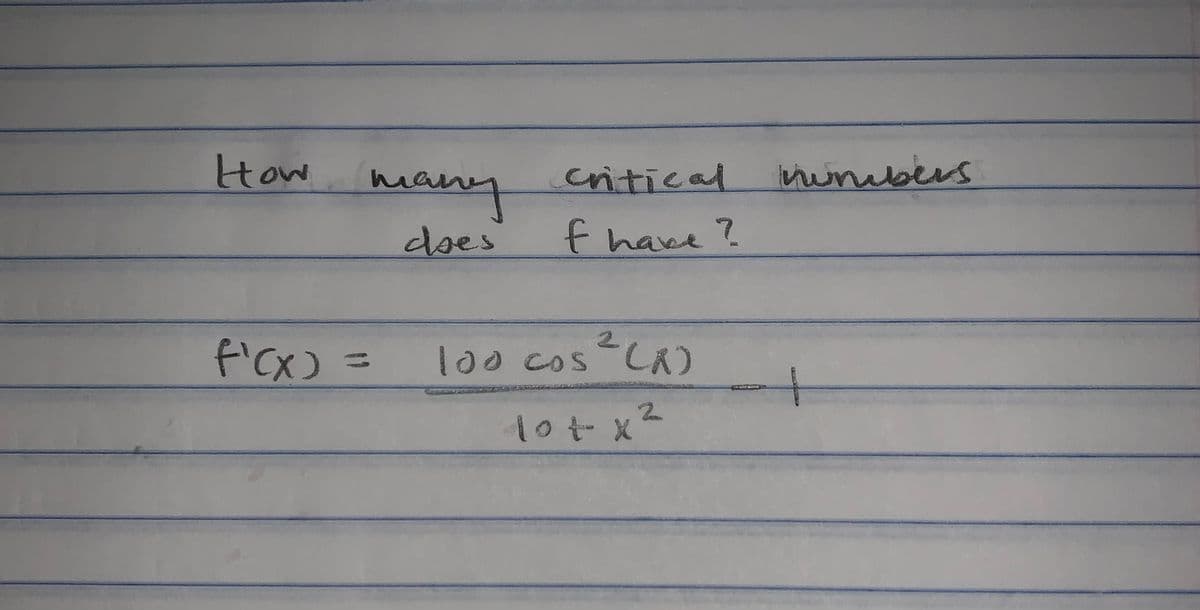 How many critical numbers
does f have ?
f'(x) = 100 cos²(x) / 10 + x² - 1